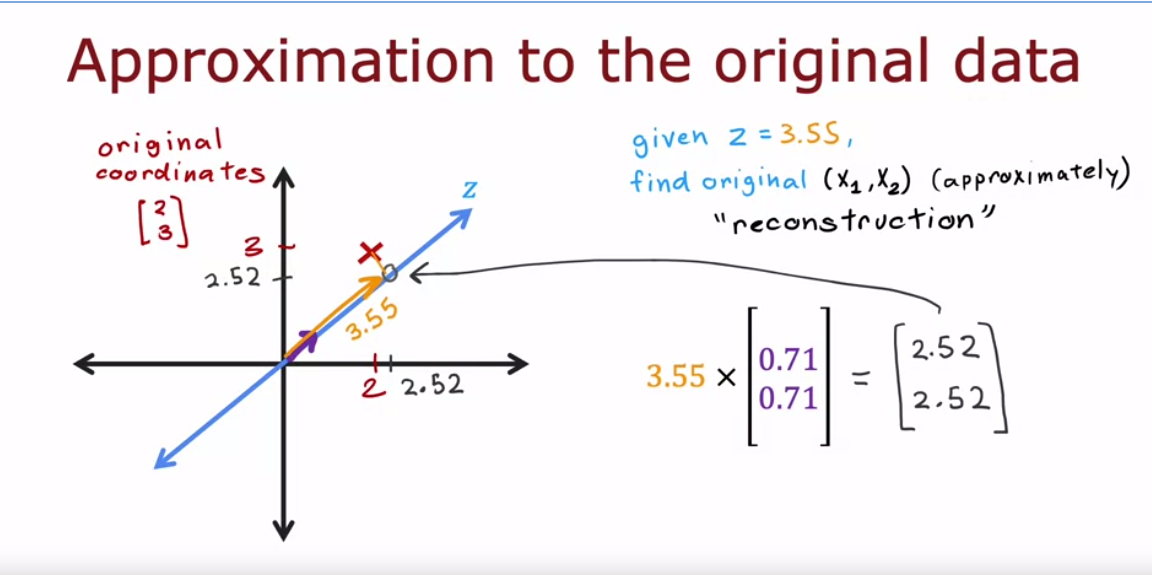 Approximation to the original data
original
coordinates
[2
3]
3
2.52
z
3.55
2 2.52
given z = 3.55,
find original (x1,x2) (approximately)
"reconstruction"
3.55 × [0.71
0.71] = [2.52
2.52]